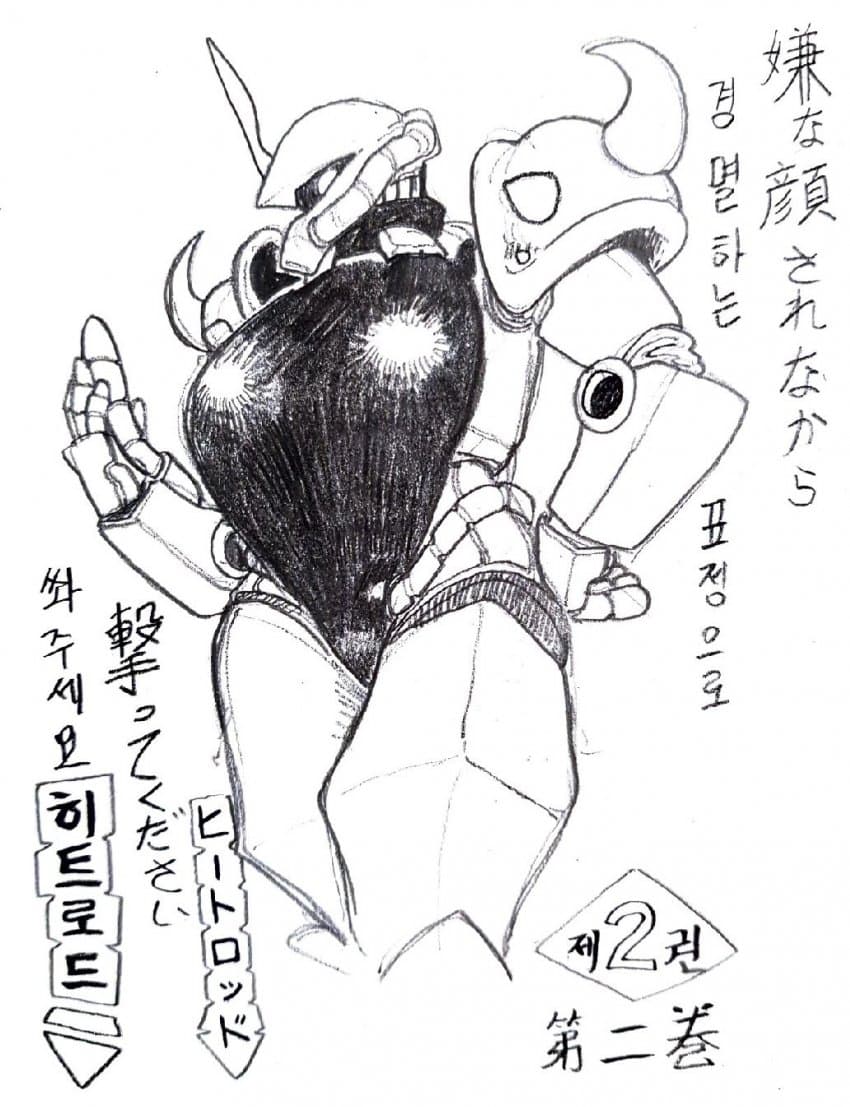 嫌な顔されなから
경멸하는
표정으로
撃ってください
쏴주세요
ヒートロッド
히트로드
제2권
第二巻